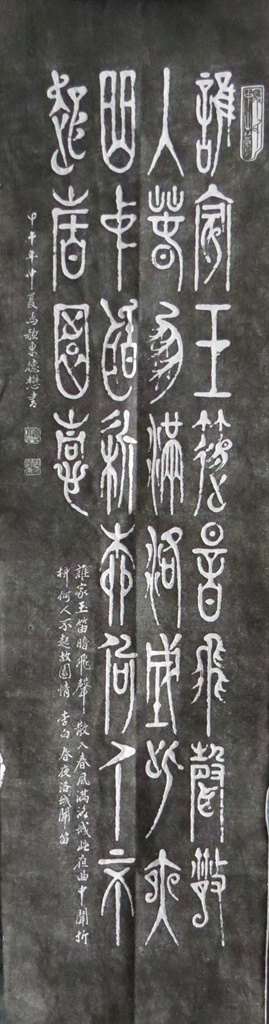 誰家玉篴暗飛聲散
入春風滿洛城此夜
曲中聞折柳何人不
起故園情
誰家玉笛暗飛聲散入春風滿洛城此夜曲中聞折
柳何人不起故園情 李白 春夜洛城聞笛
甲午年仲夏馬歌東德懋書